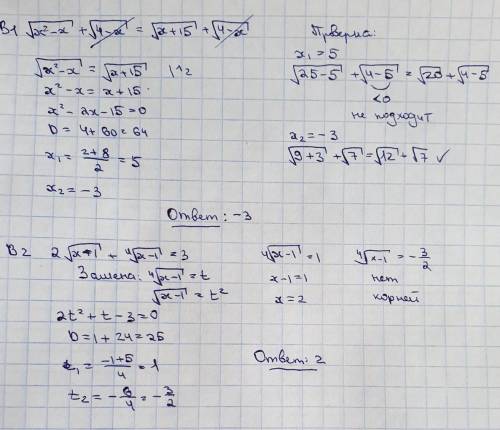 В1 √(x²-x) + √(4-x) = √(x+15) + √(4-x)
√(x²-x) = √(x+15) |^2
x² - x = x + 15
x² - 2x - 15 = 0
D = 4 + 60 = 64
x₁ = (2+8)/2 = 5
x₂ = -3
Проверка:
x₁ = 5
√(25-5) + √(4-5) = √20 + √(4-5)
<0
не подходит
x₂ = -3
√(9+3) + √7 = √12 + √7 ✓
Ответ: -3
В2 2√(x-1) + ⁴√(x-1) = 3
Замена: ⁴√(x-1) = t
√(x-1) = t²
2t² + t - 3 = 0
D = 1 + 24 = 25
t₁ = (-1+5)/4 = 1
t₂ = -6/4 = -3/2
⁴√(x-1) = 1
x - 1 = 1
x = 2
⁴√(x-1) = -3/2
нет
корней
Ответ: 2